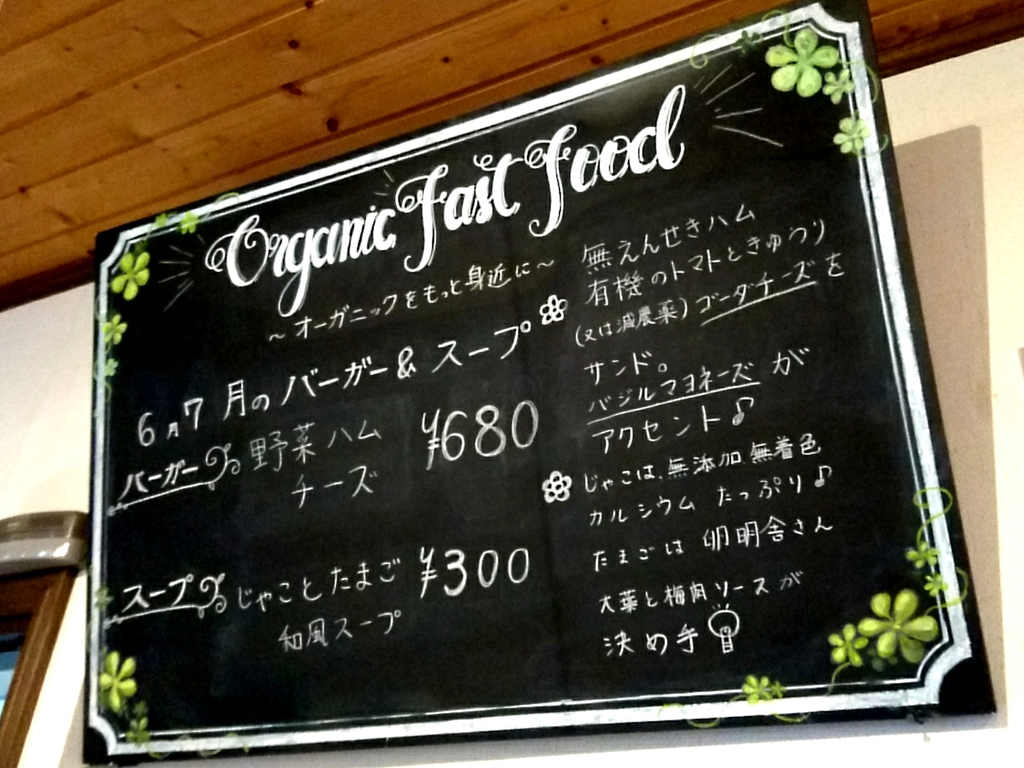 Organic Fast Food
～オーガニックをもっと身近に～
6月7月のバーガー&スープ
バーガー 野菜ハム
チーズ
¥680
スープ じゃことたまご
和風スープ
¥300
無えんせきハム
有機のトマトときゅうり
(又は減農薬)ゴーダチーズを
サンド。
バジルマヨネーズが
アクセント♪
じゃこは、無添加、無着色
カルシウム たっぷり♪
たまごは 明舎さん
大葉と梅肉ソースが
決め手